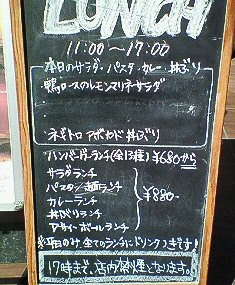 LUNCH
11:00〜17:00
・本日のサラダ・パスタ・カレー・丼ぶり
・鴨ロースのレモンマリネサラダ
・ネギトロアボカド丼ぶり
・ハンバーガーランチ(全13種)¥680から
サラダランチ
パスタ/麺ランチ
カレーランチ
丼ぶりランチ
アサイーボールランチ
¥880-
※平日のみ全てのランチにドリンクつきます!
17時まで、店内禁煙となります。